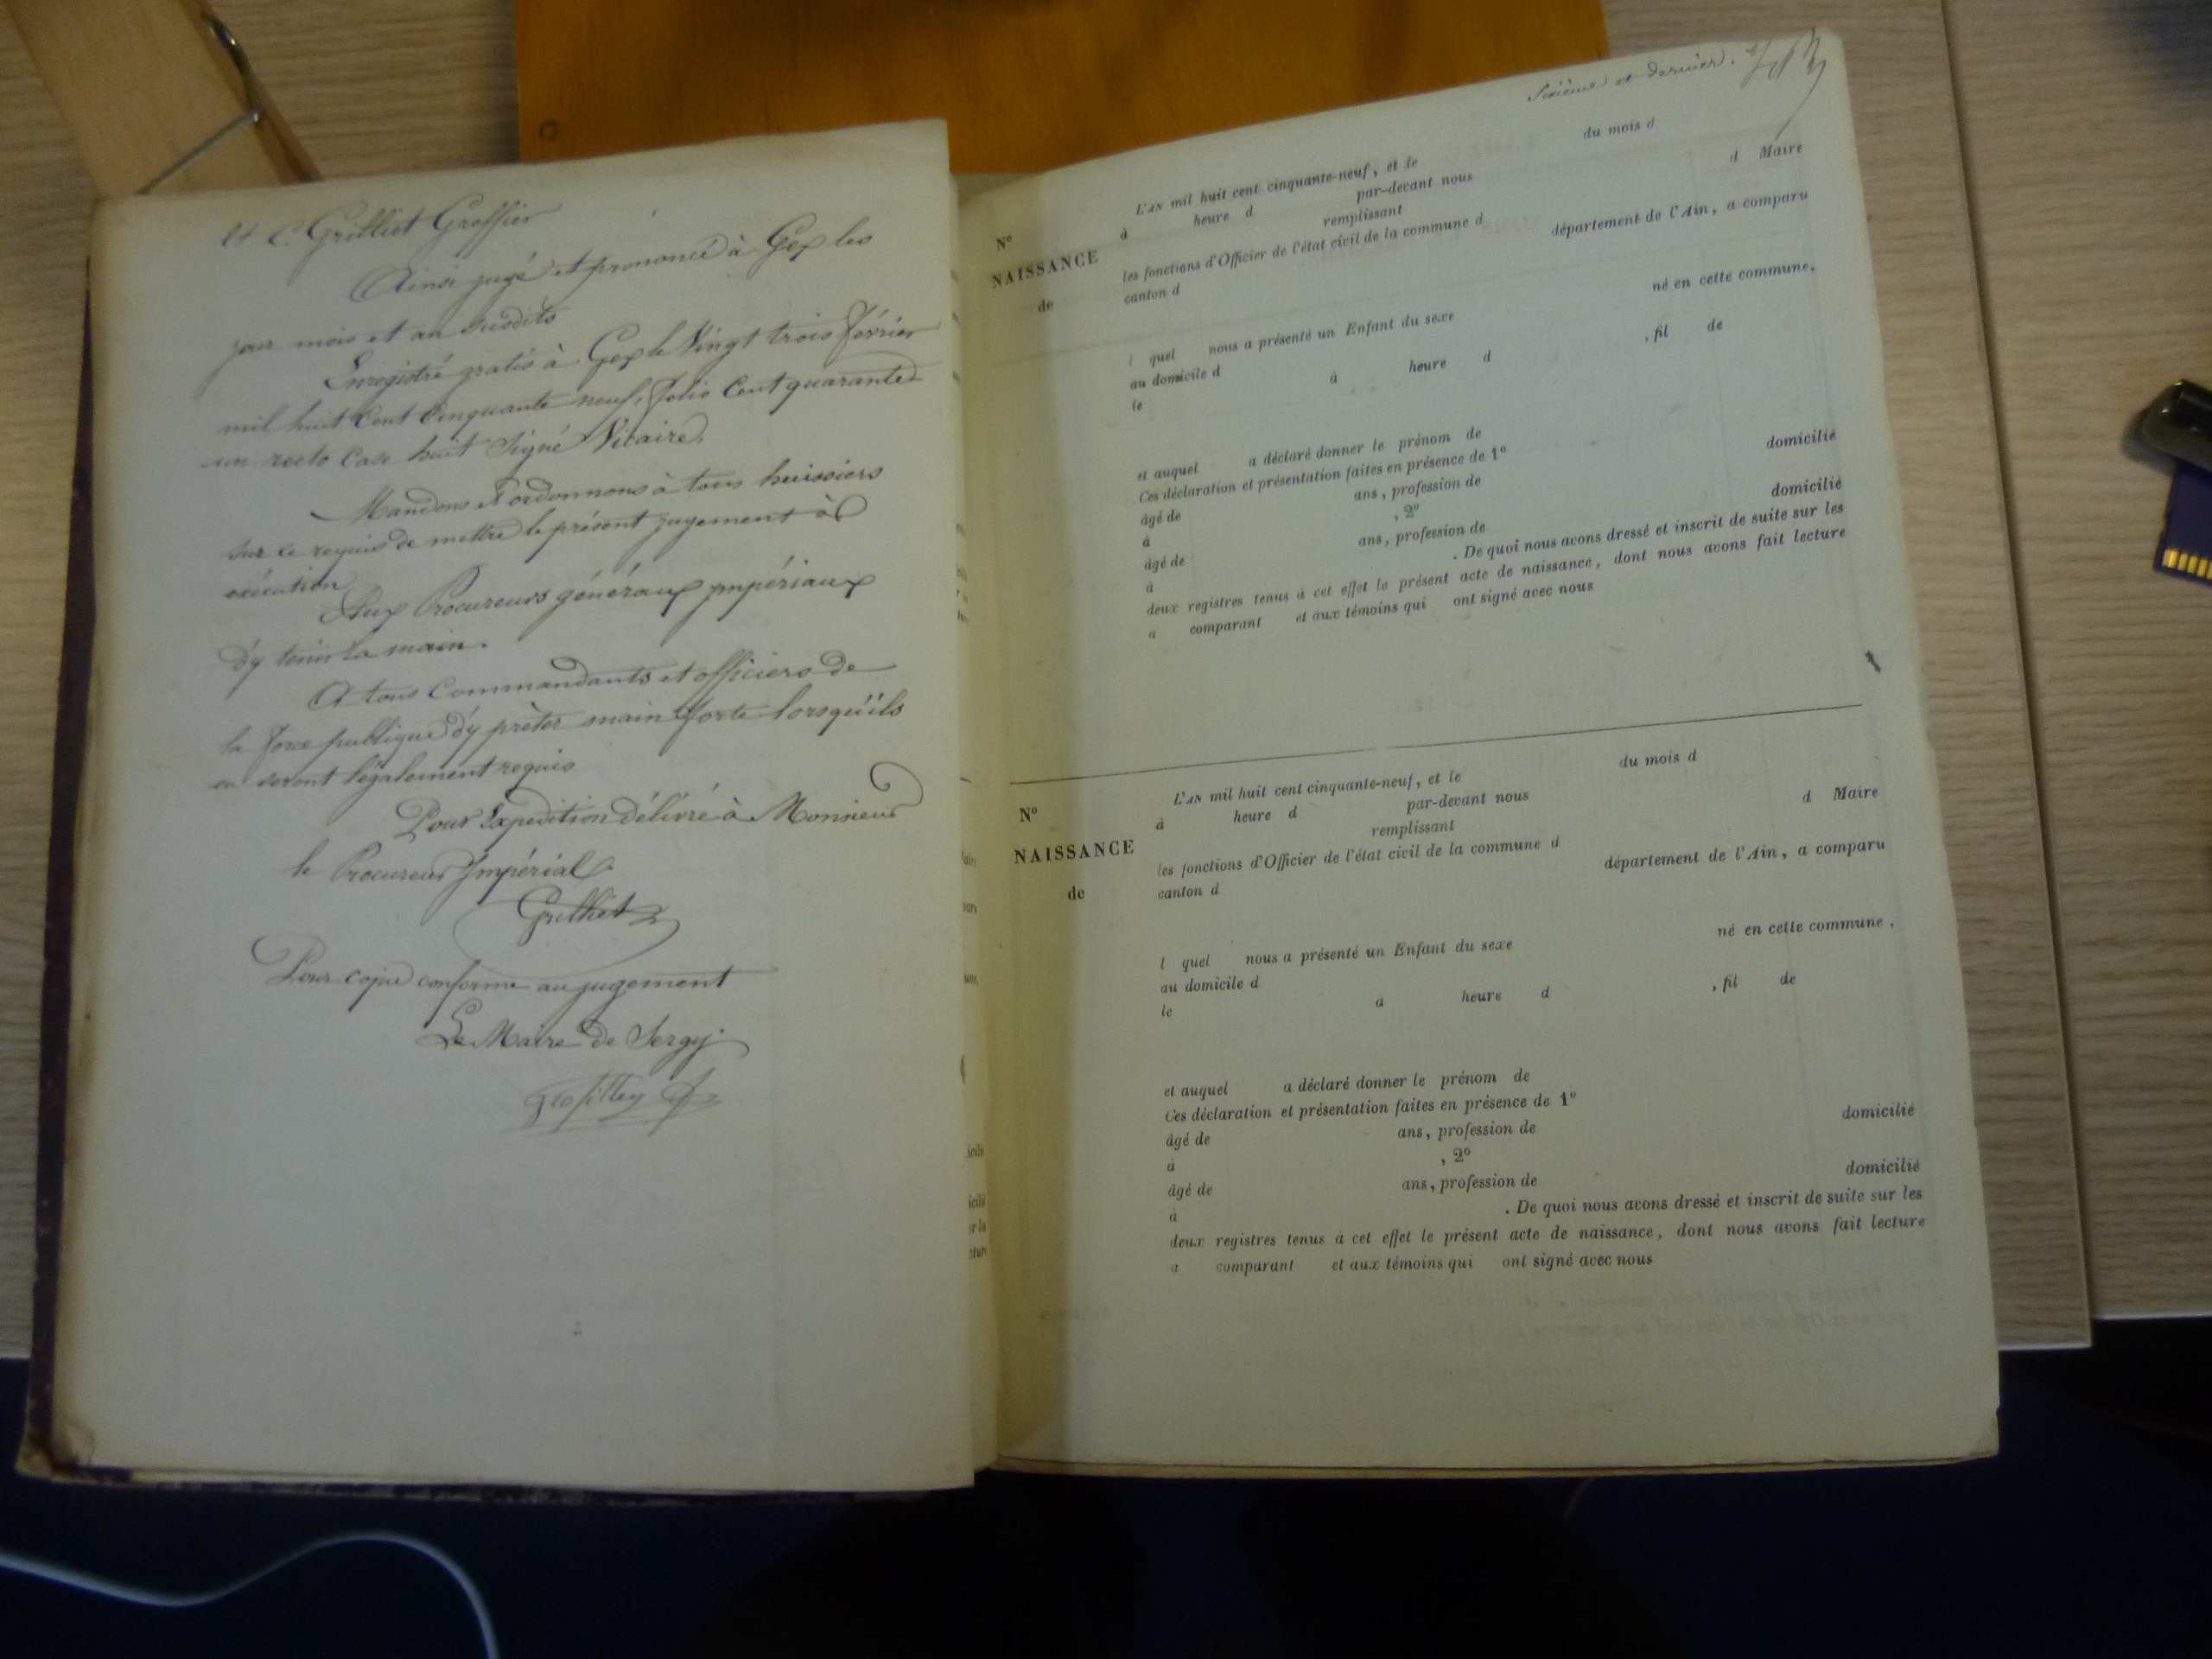 et C. Grilliet Greffier
Ainsi jugé et prononcé à Gex les
jour mois et an susdits
Enregistré gratis à Gex le Vingt trois février
mil huit Cent Cinquante neuf, folio Cent quarante
un recto Case huit Signé Vicaire.
Mandons et ordonnons à tous huissiers
sur ce requis de mettre le présent jugement à
exécution
Aux Procureurs généraux impériaux
d'y tenir la main.
A tous Commandants et officiers de
la force publique d'y prêter main forte lorsqu'ils
en seront légalement requis
Pour Expedition délivré à Monsieur
le Procureur Impérial
Grilliet
Pour copie conforme au jugement
Le Maire de Sergy
Sixième et dernier.
L'AN mil huit cent cinquante-neuf, et le du mois d
à heure d par-devant nous
remplissant d Maire
les fonctions d'Officier de l'état civil de la commune d
canton d département de l'Ain, a comparu
N°
NAISSANCE
de
l quel nous a présenté un Enfant du sexe né en cette commune,
au domicile d
le à heure d , fil de
et auquel a déclaré donner le prénom de
Ces déclaration et présentation faites en présence de 1°
âgé de ans, profession de domicilié
à , 2°
âgé de ans, profession de domicilié
à . De quoi nous avons dressé et inscrit de suite sur les
deux registres tenus à cet effet le présent acte de naissance, dont nous avons fait lecture
a comparant et aux témoins qui ont signé avec nous
L'AN mil huit cent cinquante-neuf, et le du mois d
à heure d par-devant nous
remplissant d Maire
les fonctions d'Officier de l'état civil de la commune d
canton d département de l'Ain, a comparu
N°
NAISSANCE
de
l quel nous a présenté un Enfant du sexe né en cette commune,
au domicile d
le a heure d , fil de
et auquel a déclaré donner le prénom de
Ces déclaration et présentation faites en présence de 1°
âgé de ans, profession de domicilié
à , 2°
âgé de ans, profession de domicilié
à . De quoi nous avons dressé et inscrit de suite sur les
deux registres tenus à cet effet le présent acte de naissance, dont nous avons fait lecture
a comparant et aux témoins qui ont signé avec nous